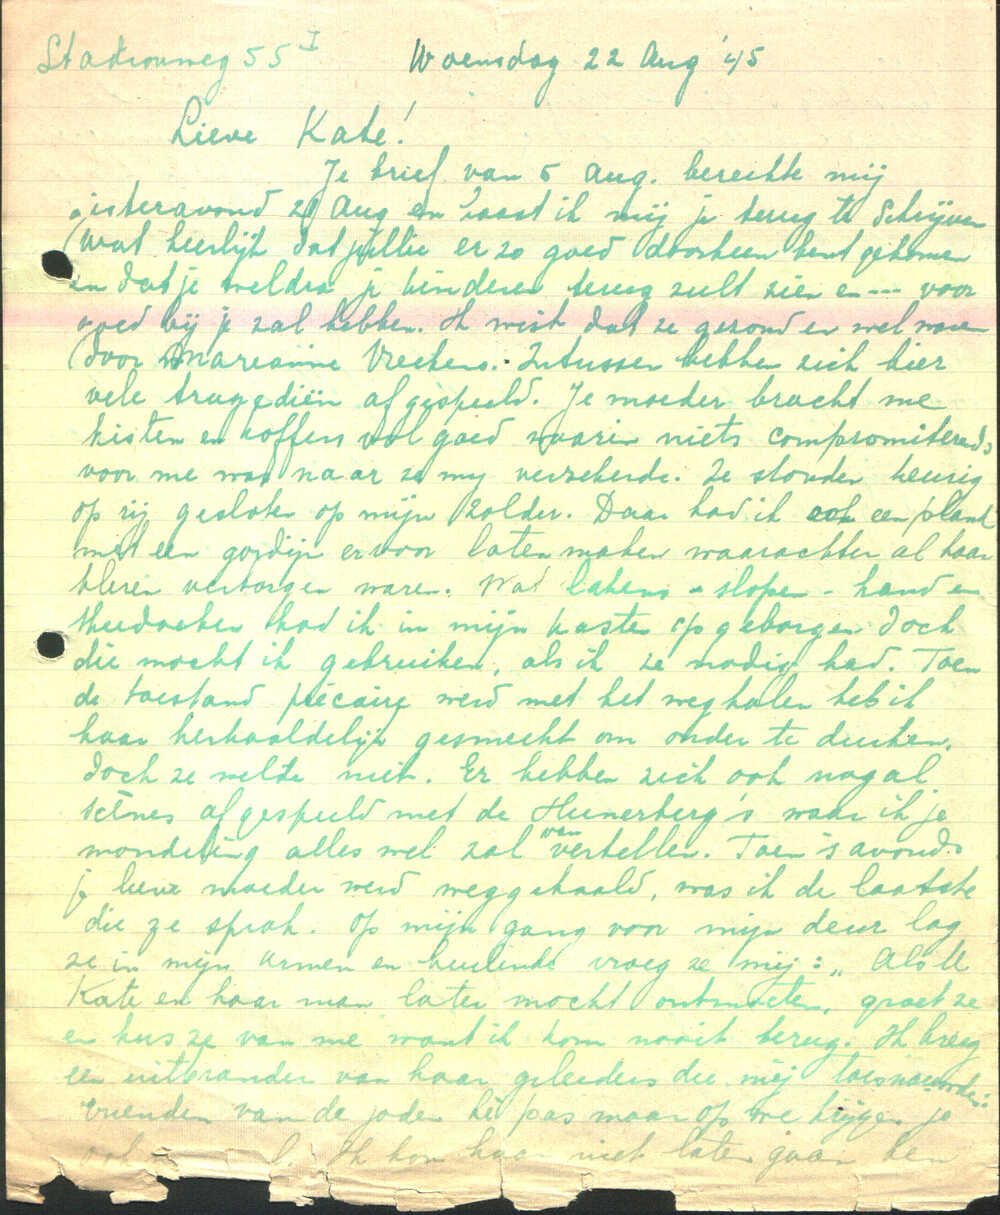 Stadionweg 55 I Woensdag 22 Aug '45
Lieve Kate!
Je brief van 5 Aug. bereikte mij
gisteravond 21 Aug en haast ik mij je terug te schrijven
Wat heerlijk dat jullie er zo goed doorheen bent gekomen
en dat je weldra je kinderen terug zult zien en --- voor
goed bij je zal hebben. Ik wist dat ze gezond en wel waren
door Marianne Vrekens. Intussen hebben zich hier
vele tragediën afgespeeld. Je moeder bracht me
kisten en koffers vol goed waarin niets compromiterends
voor me was naar ze my verzekerde. Ze stonden keurig
op rij gesloten op mijn zolder. Daar had ik ook een plank
met een gordijn ervoor laten maken waarachter al haar
kleren verborgen waren. Wat lakens - slopen - hand en
theedoeken had ik in mijn kasten opgeborgen doch
die mocht ik gebruiken, als ik ze nodig had. Toen
de toestand précaire werd met het weghalen heb ik
haar herhaaldelijk gesmeekt om onder te duiken,
doch ze wilde niet. Er hebben zich ook nogal
scènes afgespeeld met de Hunerberg's waar ik je
mondeling alles wel zal van vertellen. Toen 's avonds
je lieve moeder werd weggehaald, was ik de laatste
die ze sprak. Op mijn gang voor mijn deur lag
ze in mijn armen en huilende vroeg ze mij: „Als U
Kate en haar man later mocht ontmoeten, groet ze
en kus ze van me want ik kom nooit terug. Ik kreeg
een uitbrander van haar geleiders die mij toesnauwden:
vrienden van de joden hè pas maar op we krijgen je
ook Ik kon haar niet laten gaan ken